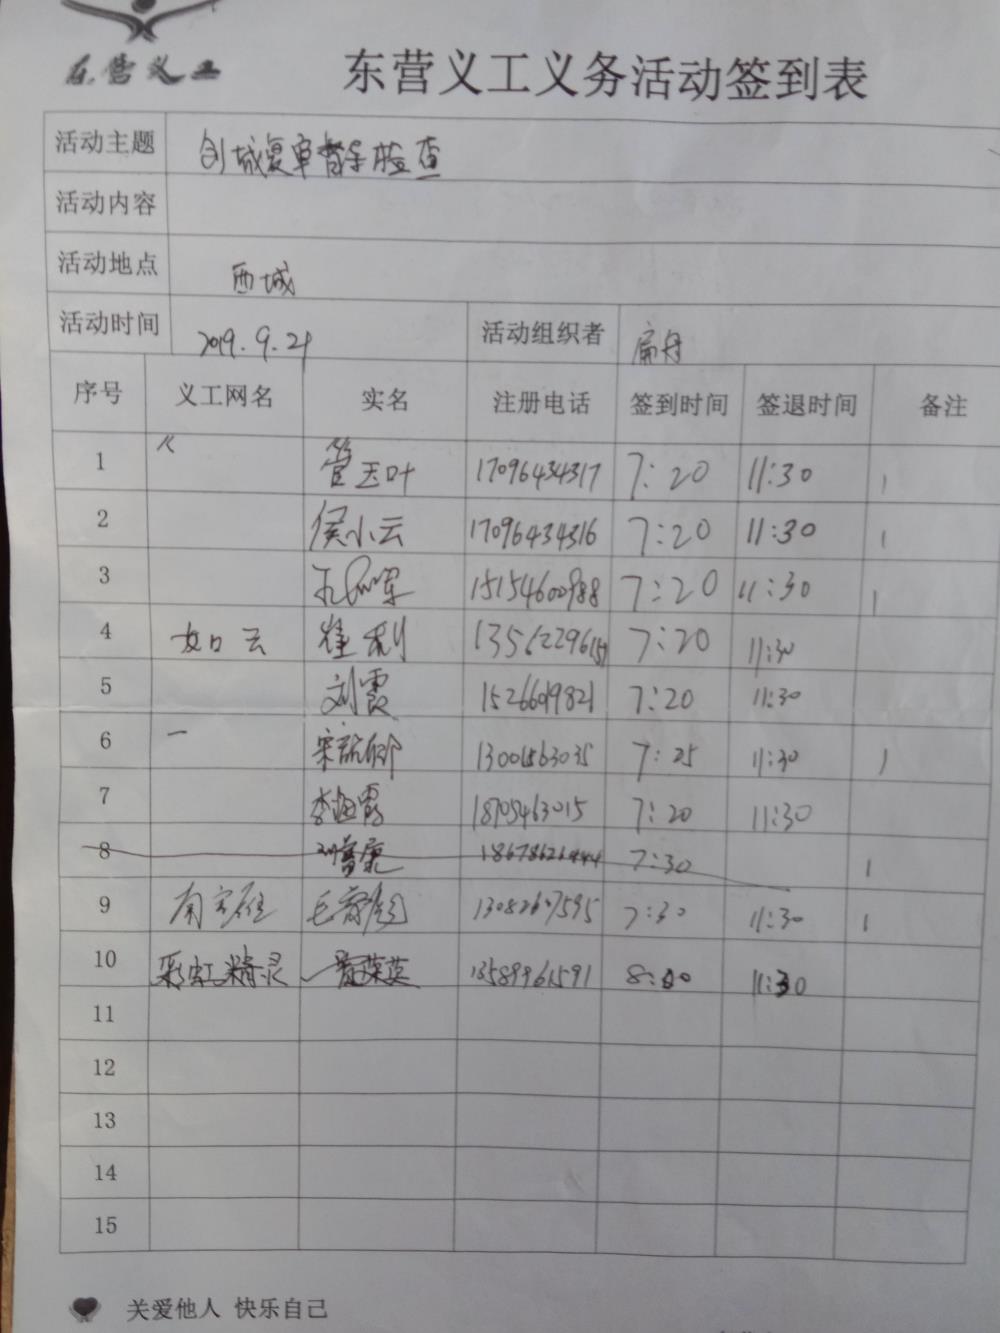 东营义工
东营义工义务活动签到表
活动主题 创城复审督导检查
活动内容
活动地点 西城
活动时间 2019.9.21 活动组织者 扁舟
序号 义工网名 实名 注册电话 签到时间 签退时间 备注
1 管玉叶 17096434317 7:20 11:30 1
2 侯小云 17096434316 7:20 11:30 1
3 15154600988 7:20 11:30 1
4 如口云 崔利 7:20 11:30
5 刘霞 7:20 11:30
6 一 13001563035 7:25 11:30 1
7 李海霞 18705463015 7:20 11:30
8 7:30 1
9 13082607595 7:30 11:30 1
10 彩虹精灵 13589961591 8:00 11:30
11
12
13
14
15
关爱他人 快乐自己